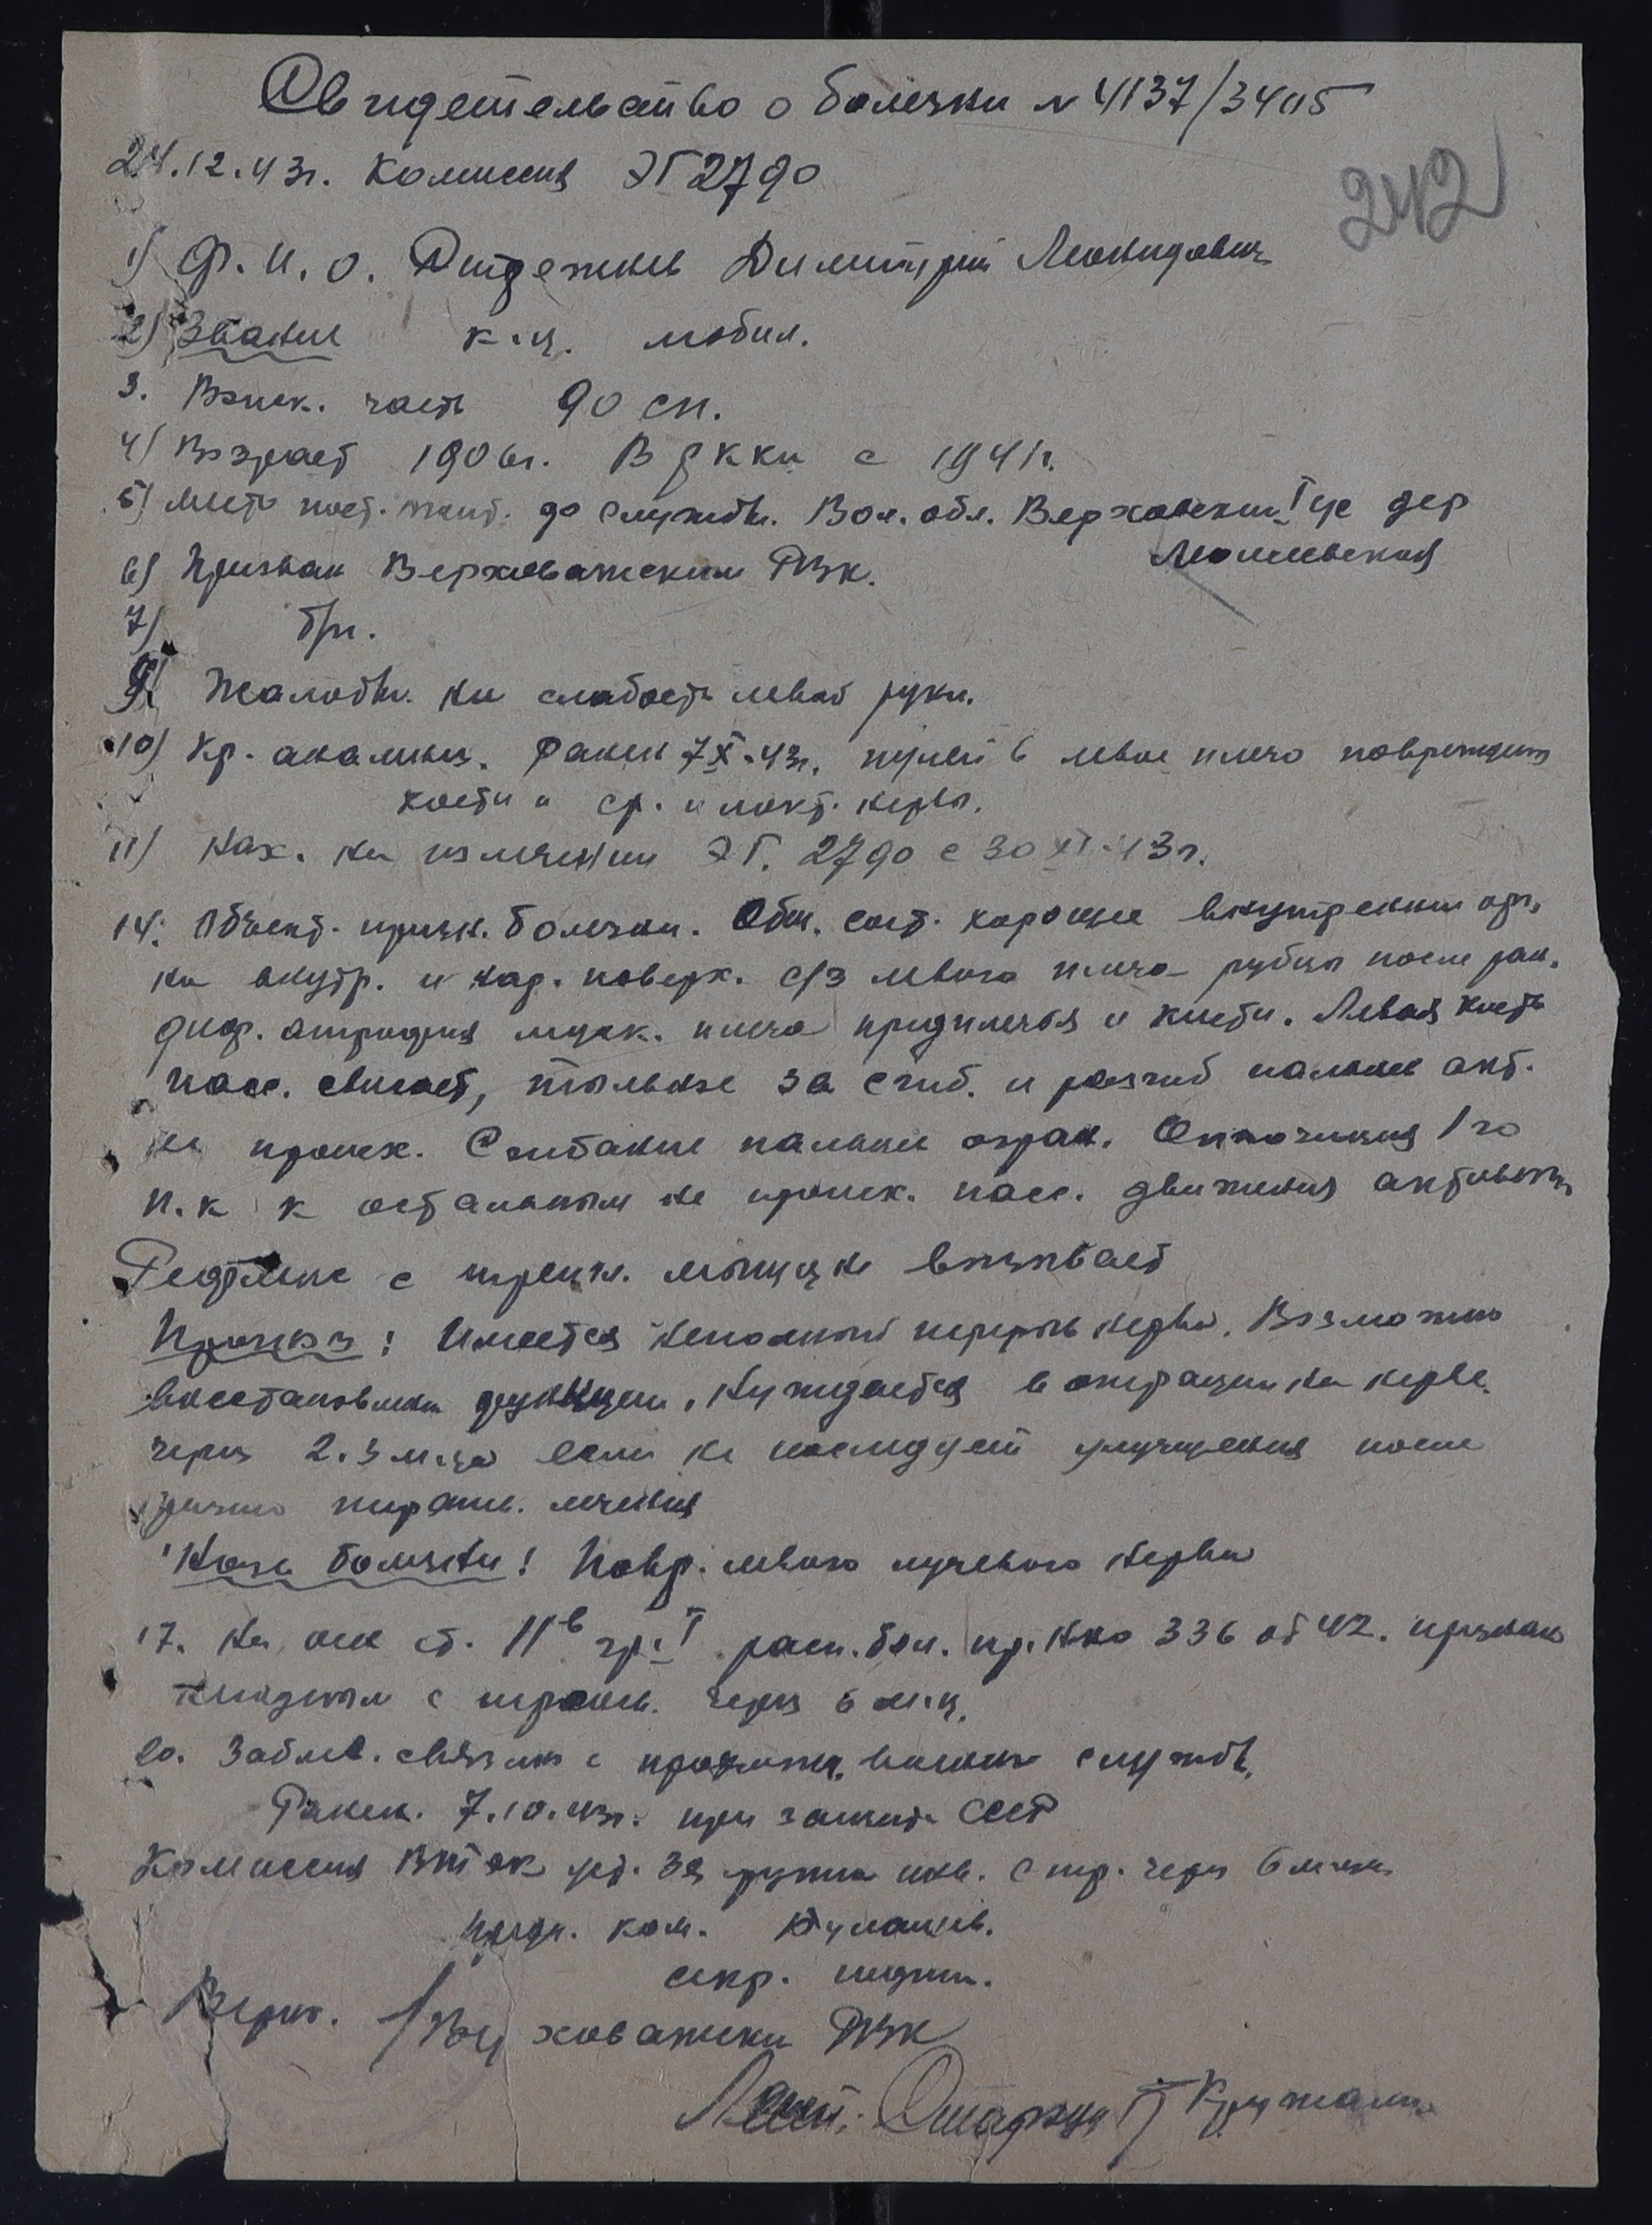 Свидетельство о болезни № 4137/3405
24.12.43г. Комиссия ЭГ 2790
242
1) Ф.И.О. Димитрий Леонидович
2) Звание к-ц. мобил.
3. Воиск. часть 90 сп.
4) Возраст 1906г. В РККА с 1941г.
5) Место пост. жит. до службы. Вол. обл. Верховский дер
6) Призван Верховажским РВК.
7) б/п.
9) Жалобы. на слабость левой руки.
10) Кр. анамнез. Ранен 7 X-43г. пулей в левое плечо поврежден
кости и ср. и локт. нервы.
11) Нах. на излечении ЭГ. 2790 с 30 XI-43г.
14. Объект. призн. болезни. Общ. сост. хорошее внутренних орг.
на внутр. и зад. поверх. с/з левого плеча рубцы после ран.
диф. атрофия муск. плеча предплечья и кисти. Левая кисть
пасс. свисает, тыльное за сгиб. и разгиб пальцев акт.
не происх. Сгибание пальцев огран. 1го
п. к к остальным не происх. пасс. движения
с трехгл. мышцы не вызывает
Прогноз: Имеется неполный перерыв нерва. Возможно
восстановлен функции. Нуждается в операции на нерве.
через 2.3 м-ца если не последует улучшения после
лечения
Назв болезни: Повр. левого лучевого нерва
17. На осн ст. 11в гр. I расп. бол. пр. НКО 336 от 42. признан
с через 6 м-ц.
20. Заболев. связано с военной службы.
Ранен. 7.10.43г. при защите СССР
Комиссия ВТЭК уст. 3я группа инв. с пер. через 6 м-цев
Предс. ком.
секр. подпись.
Верно. Верховажский РВК